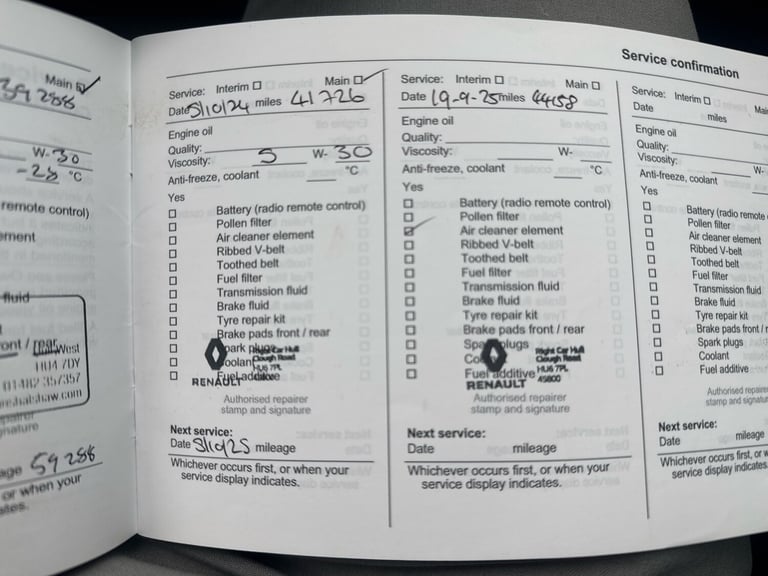 Main
39288
W-30
-25 °C
remote control)
ement
fluid
ont / rear
West
HU4 7DY
01482 357357
59288
or when your
Service confirmation
Service: Interim Main
Date 5/10/24 miles 41726
Engine oil
Quality:
Viscosity: 5 W- 30
Anti-freeze, coolant °C
Yes
Battery (radio remote control)
Pollen filter
Air cleaner element
Ribbed V-belt
Toothed belt
Fuel filter
Transmission fluid
Brake fluid
Tyre repair kit
Brake pads front / rear
Spark plugs
Coolant
Fuel additive
Right Car Hull
Clough Road
HU6 7PL
RENAULT
Authorised repairer
stamp and signature
Next service:
Date 5/10/25 mileage
Whichever occurs first, or when your
service display indicates.
Service: Interim Main
Date 19-9-25 miles 44158
Engine oil
Quality:
Viscosity: W-
Anti-freeze, coolant °C
Yes
Battery (radio remote control)
Pollen filter
Air cleaner element
Ribbed V-belt
Toothed belt
Fuel filter
Transmission fluid
Brake fluid
Tyre repair kit
Brake pads front / rear
Spa plugs
Co
Fuel additive
Right Car Hull
Clough Road
HU6 7PL
45800
RENAULT
Authorised repairer
stamp and signature
Next service:
Date mileage
Whichever occurs first, or when your
service display indicates.
Service: Interim Main
Date miles
Engine oil
Quality:
Viscosity: W-
Anti-freeze, coolant
Yes
Battery (radio remote
Pollen filter
Air cleaner element
Ribbed V-belt
Toothed belt
Fuel filter
Transmission fluid
Brake fluid
Tyre repair kit
Brake pads front /
Spark plugs
Coolant
Fuel additive
Authorised repairer
stamp and signatur
Next service:
Date mileage
Whichever occurs first, or w
service display indicates.